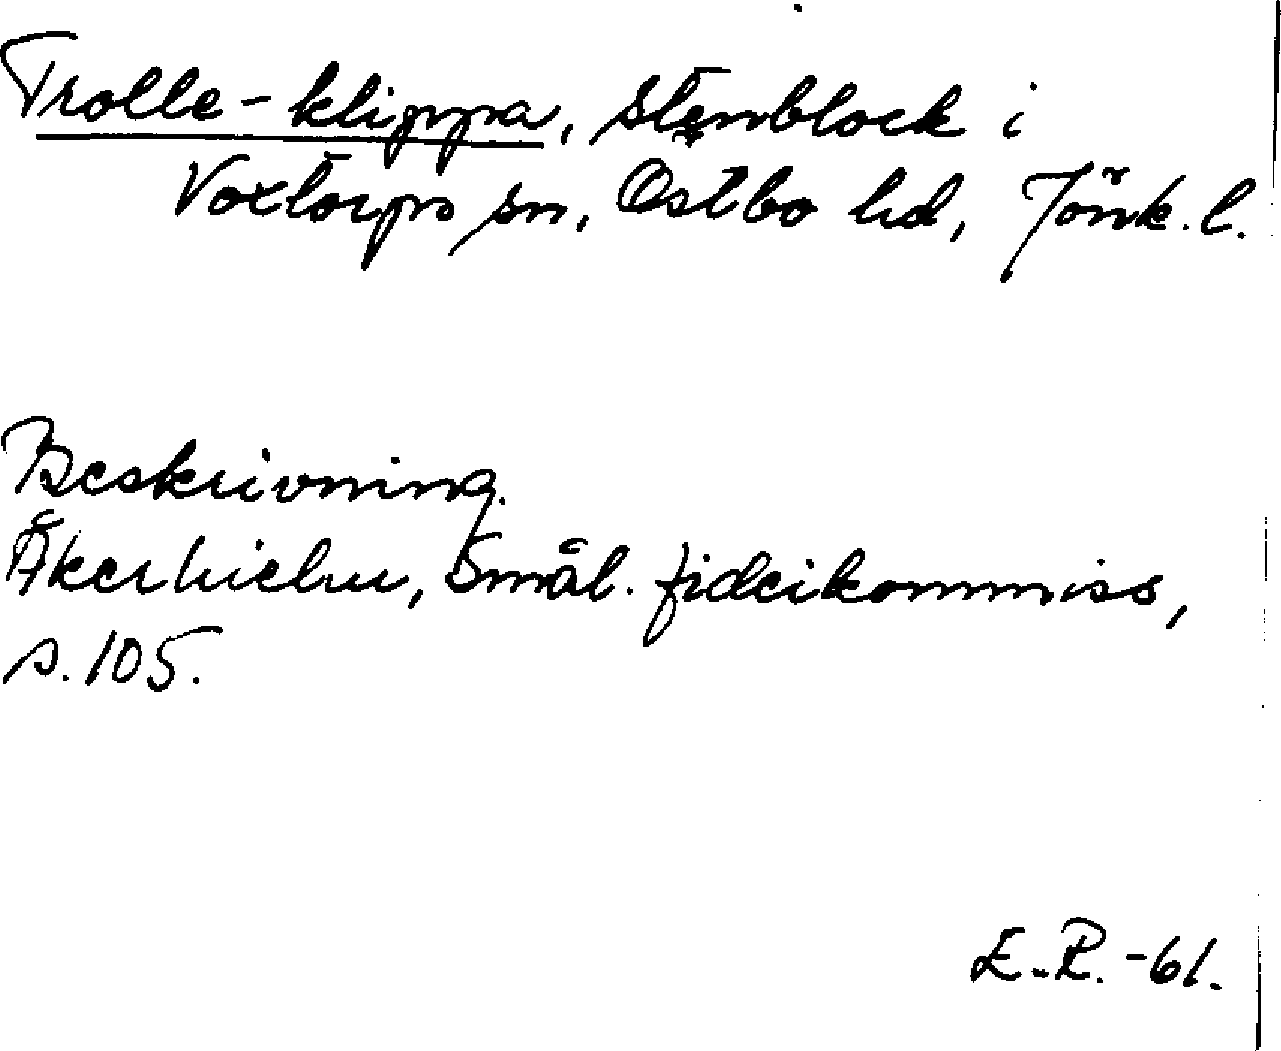 Trolle-klippa, stenblock i
Voxtorps sn, Östbo hd, Jönk. l.
Beskrivning.
Åkerhielm, Smål. fideikommiss,
s. 105.
E.R. -61.